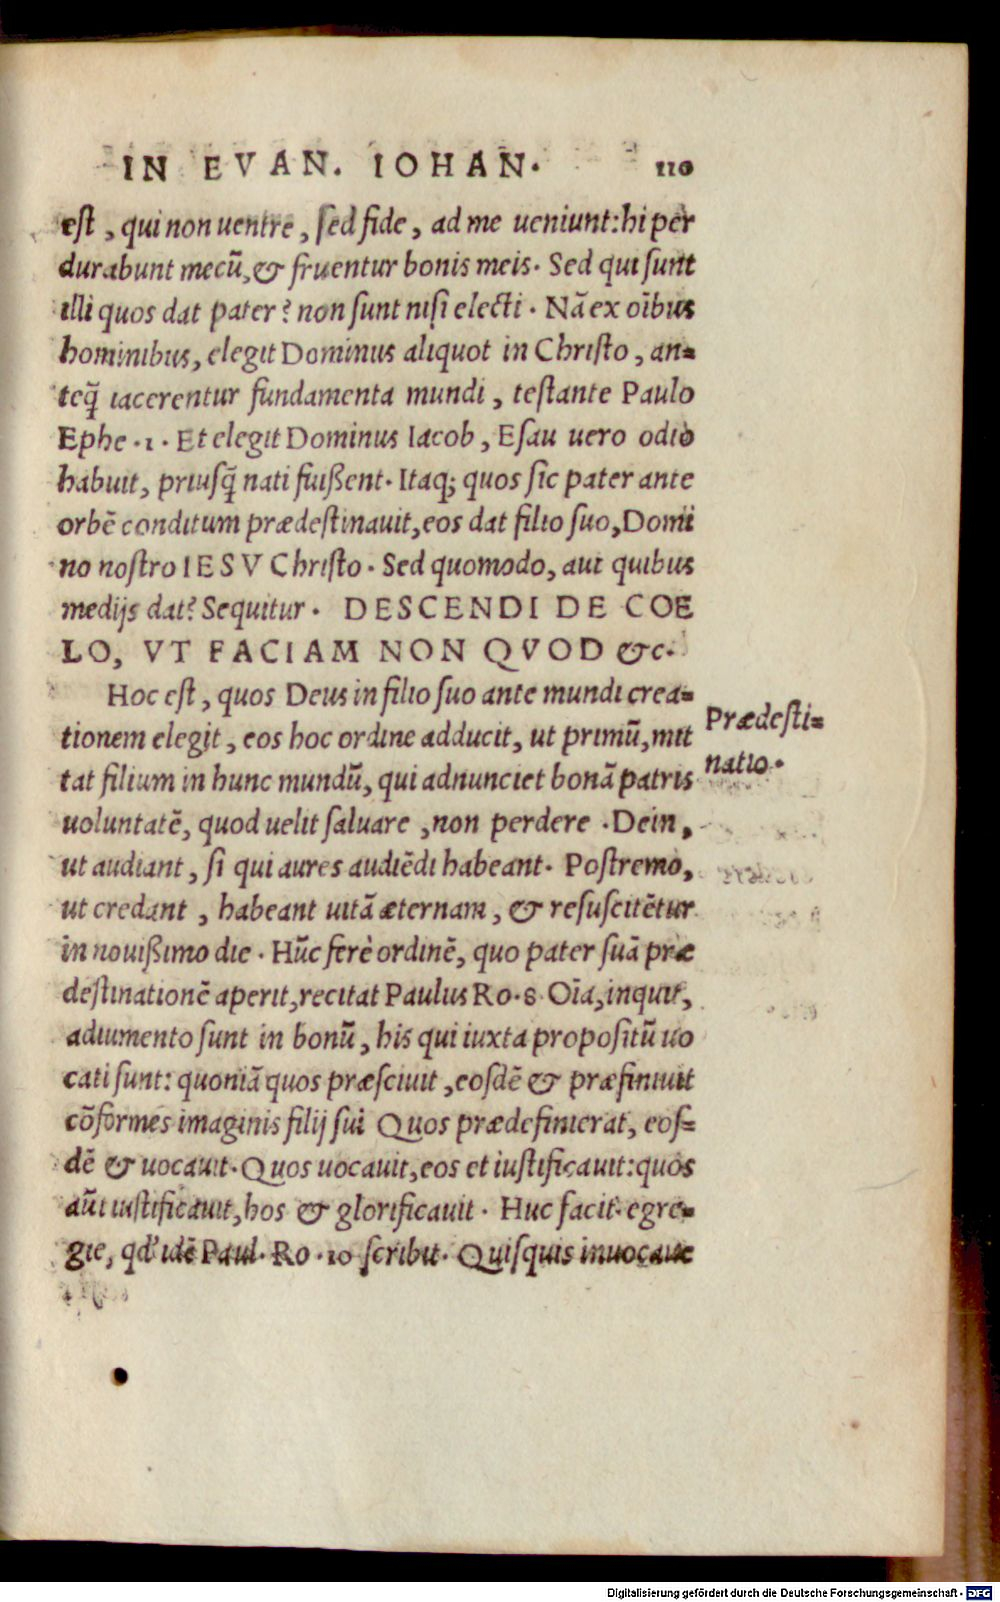 IN EVAN. IOHAN. 110
est, qui non uentre, sed fide, ad me ueniunt: hi per
durabunt mecū, & fruentur bonis meis. Sed qui sunt
illi quos dat pater? non sunt nisi electi. Nā ex oībus
hominibus, elegit Dominus aliquot in Christo, an=
teq̃ iacerentur fundamenta mundi, testante Paulo
Ephe. 1. Et elegit Dominus Iacob, Esau uero odio
habuit, priusq̃ nati fuißent. Itaq; quos sic pater ante
orbē conditum prædestinauit, eos dat filio suo, Domi
no nostro IESV Christo. Sed quomodo, aut quibus
medijs dat? Sequitur. DESCENDI DE COE
LO, VT FACIAM NON QVOD &c.
Hoc est, quos Deus in filio suo ante mundi crea=
tionem elegit, eos hoc ordine adducit, ut primū, mit
tat filium in hunc mundū, qui adnunciet bonā patris
uoluntatē, quod uelit saluare, non perdere. Dein,
ut audiant, si qui aures audiēdi habeant. Postremo,
ut credant, habeant uitā æternam, & resuscitētur
in nouißimo die. Hūc ferè ordinē, quo pater suā præ
destinationē aperit, recitat Paulus Ro. 8. Oīa, inquit,
adiumento sunt in bonū, his qui iuxta propositū uo
cati sunt: quoniā quos præsciuit, eosdē & præfiniuit
cōformes imaginis filij sui Quos prædefinierat, eos=
dē & uocauit. Quos uocauit, eos et iustificauit: quos
aūt iustificauit, hos & glorificauit. Huc facit egre=
gie, qd' idē Paul. Ro. 10 scribit. Quisquis inuocaue
Prædesti=
natio.
Digitalisierung gefördert durch die Deutsche Forschungsgemeinschaft - DFG